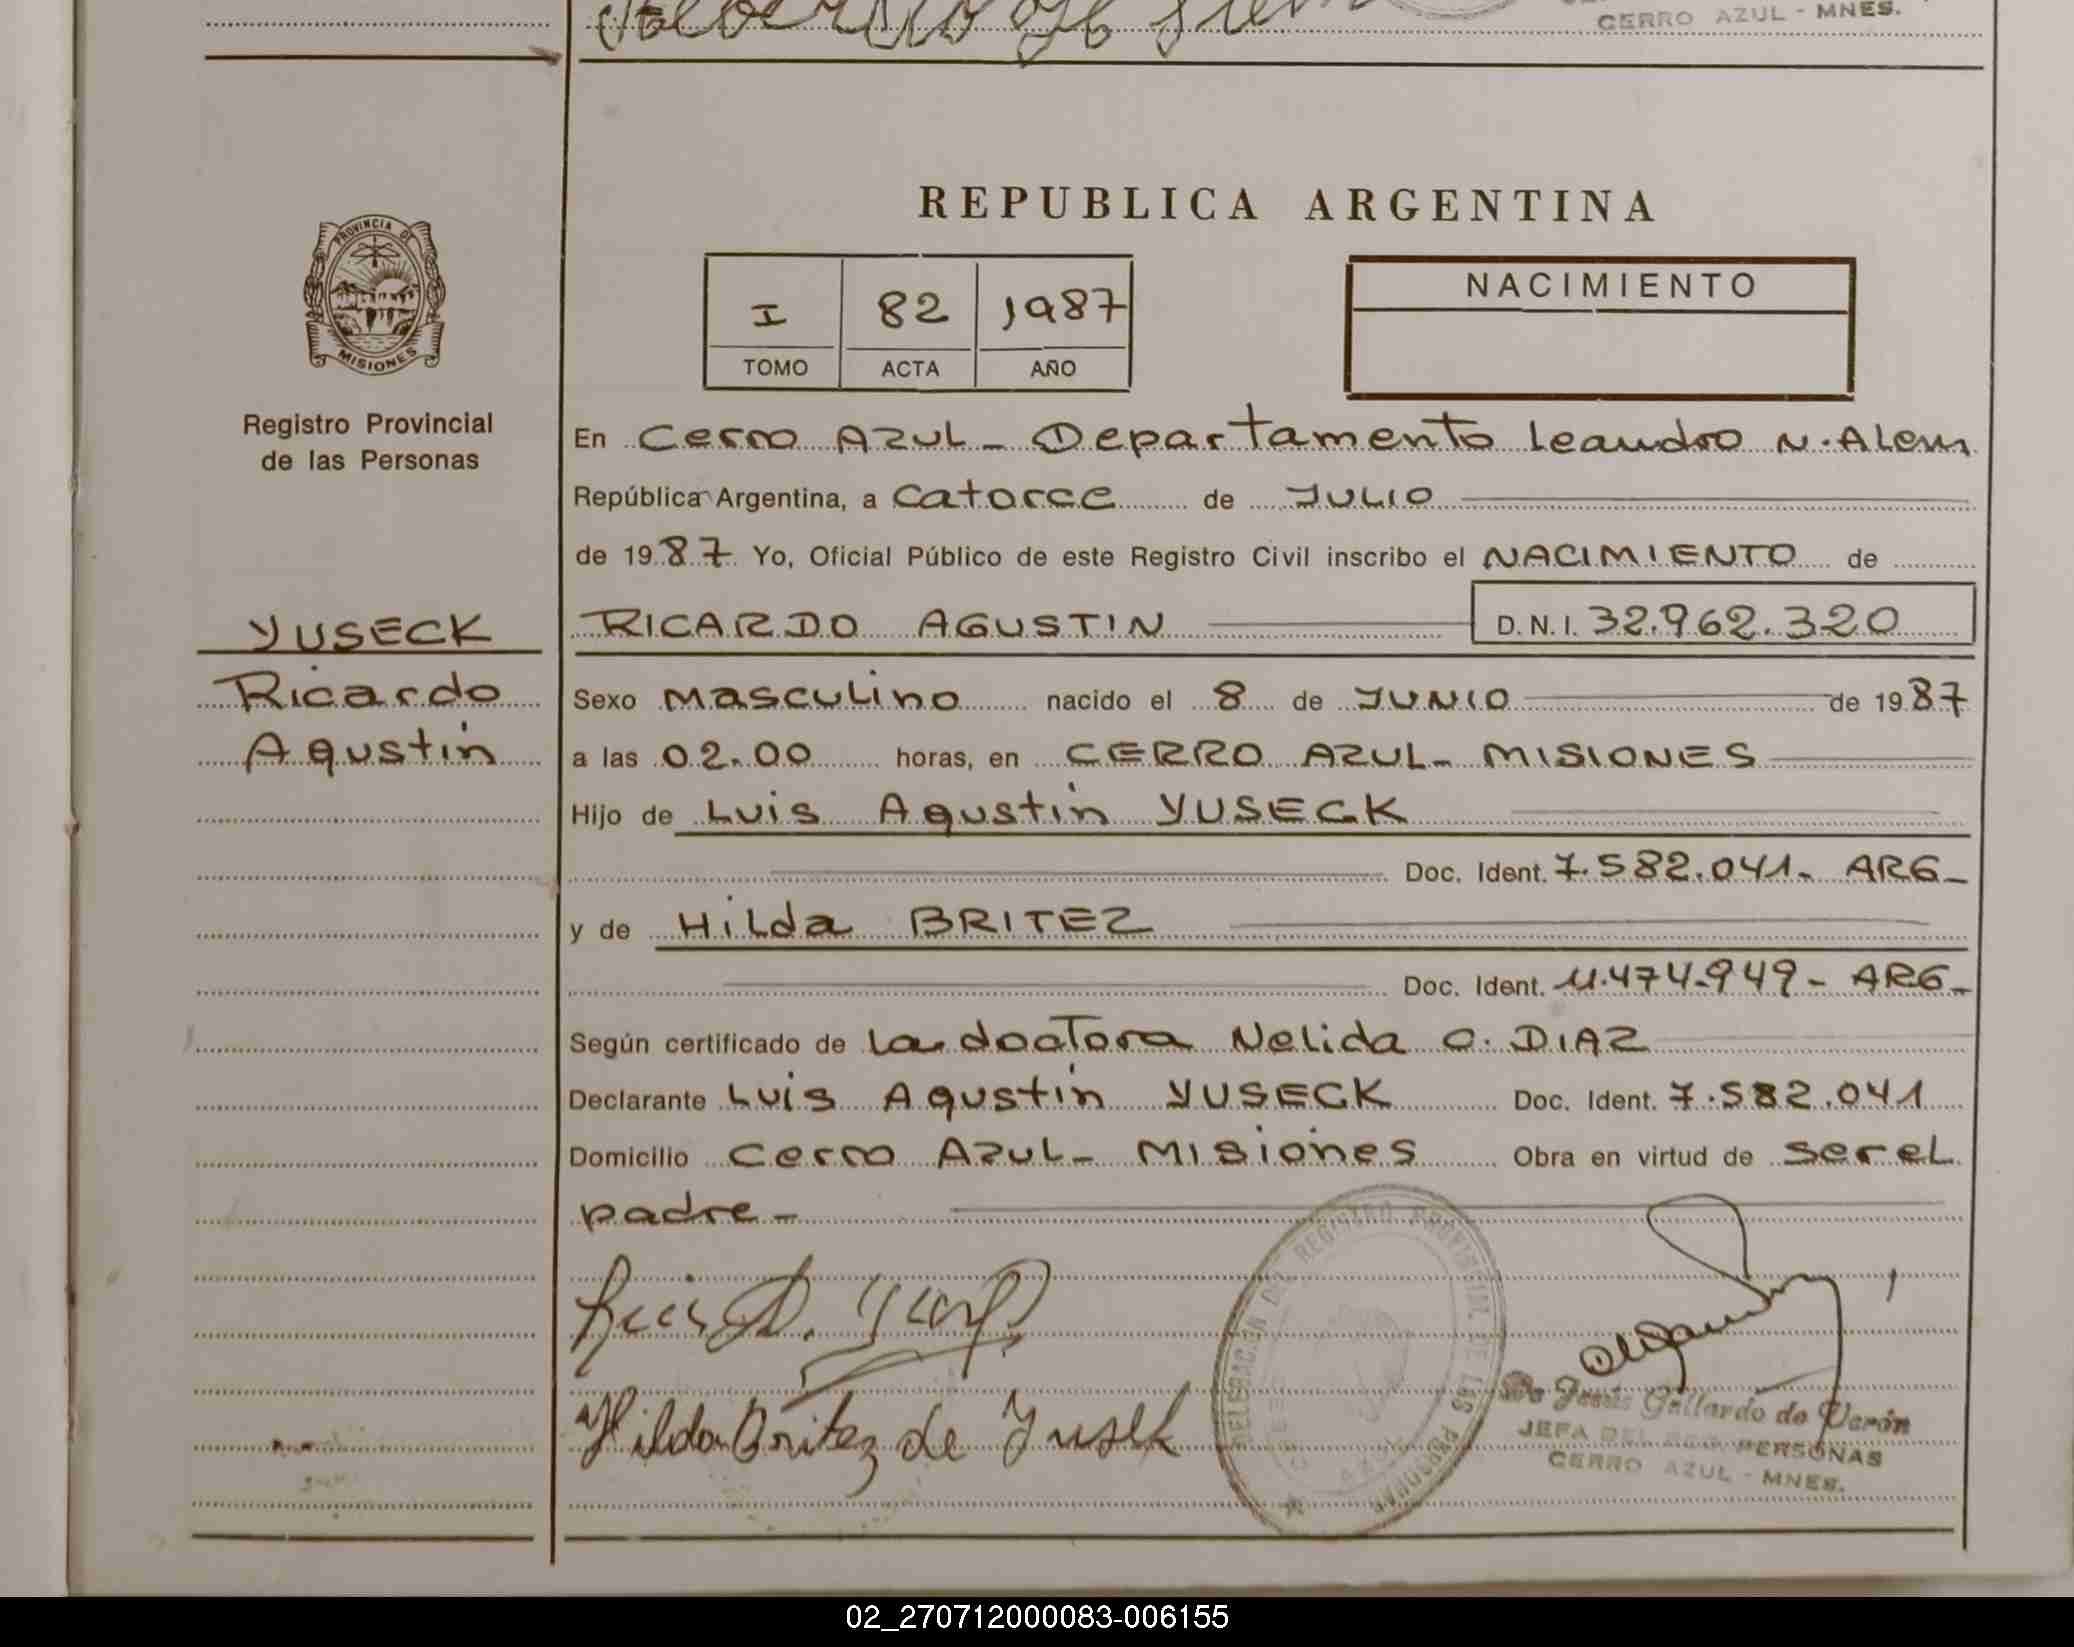 CERRO AZUL - MNES.
REPUBLICA ARGENTINA
PROVINCIA DE
MISIONES
Registro Provincial
de las Personas
I 82 1987
TOMO ACTA AÑO
NACIMIENTO
En Cerro Azul - Departamento Leandro N. Alem
República Argentina, a catorce de JULIO
de 1987 Yo, Oficial Público de este Registro Civil inscribo el NACIMIENTO de
RICARDO AGUSTIN D.N.I. 32.962.320
YUSECK
Ricardo
Agustín
Sexo masculino nacido el 8 de JUNIO de 1987
a las 02.00 horas, en CERRO AZUL - MISIONES
Hijo de Luis Agustín YUSECK
Doc. Ident. 7.582.041- ARG-
y de Hilda BRITEZ
Doc. Ident. 11.474.949- ARG-
Según certificado de la doctora Nelida C. DIAZ
Declarante Luis Agustín YUSECK Doc. Ident. 7.582.041
Domicilio Cerro Azul - Misiones Obra en virtud de ser el
padre -
Luis A.
Hilda Britez de Yusek
DELEGACION DEL REGISTRO PROVINCIAL DE LAS PERSONAS
CERRO AZUL
Jesús Gallardo de Verón
JEFA DEL REG. PERSONAS
CERRO AZUL - MNES.
02_270712000083-006155